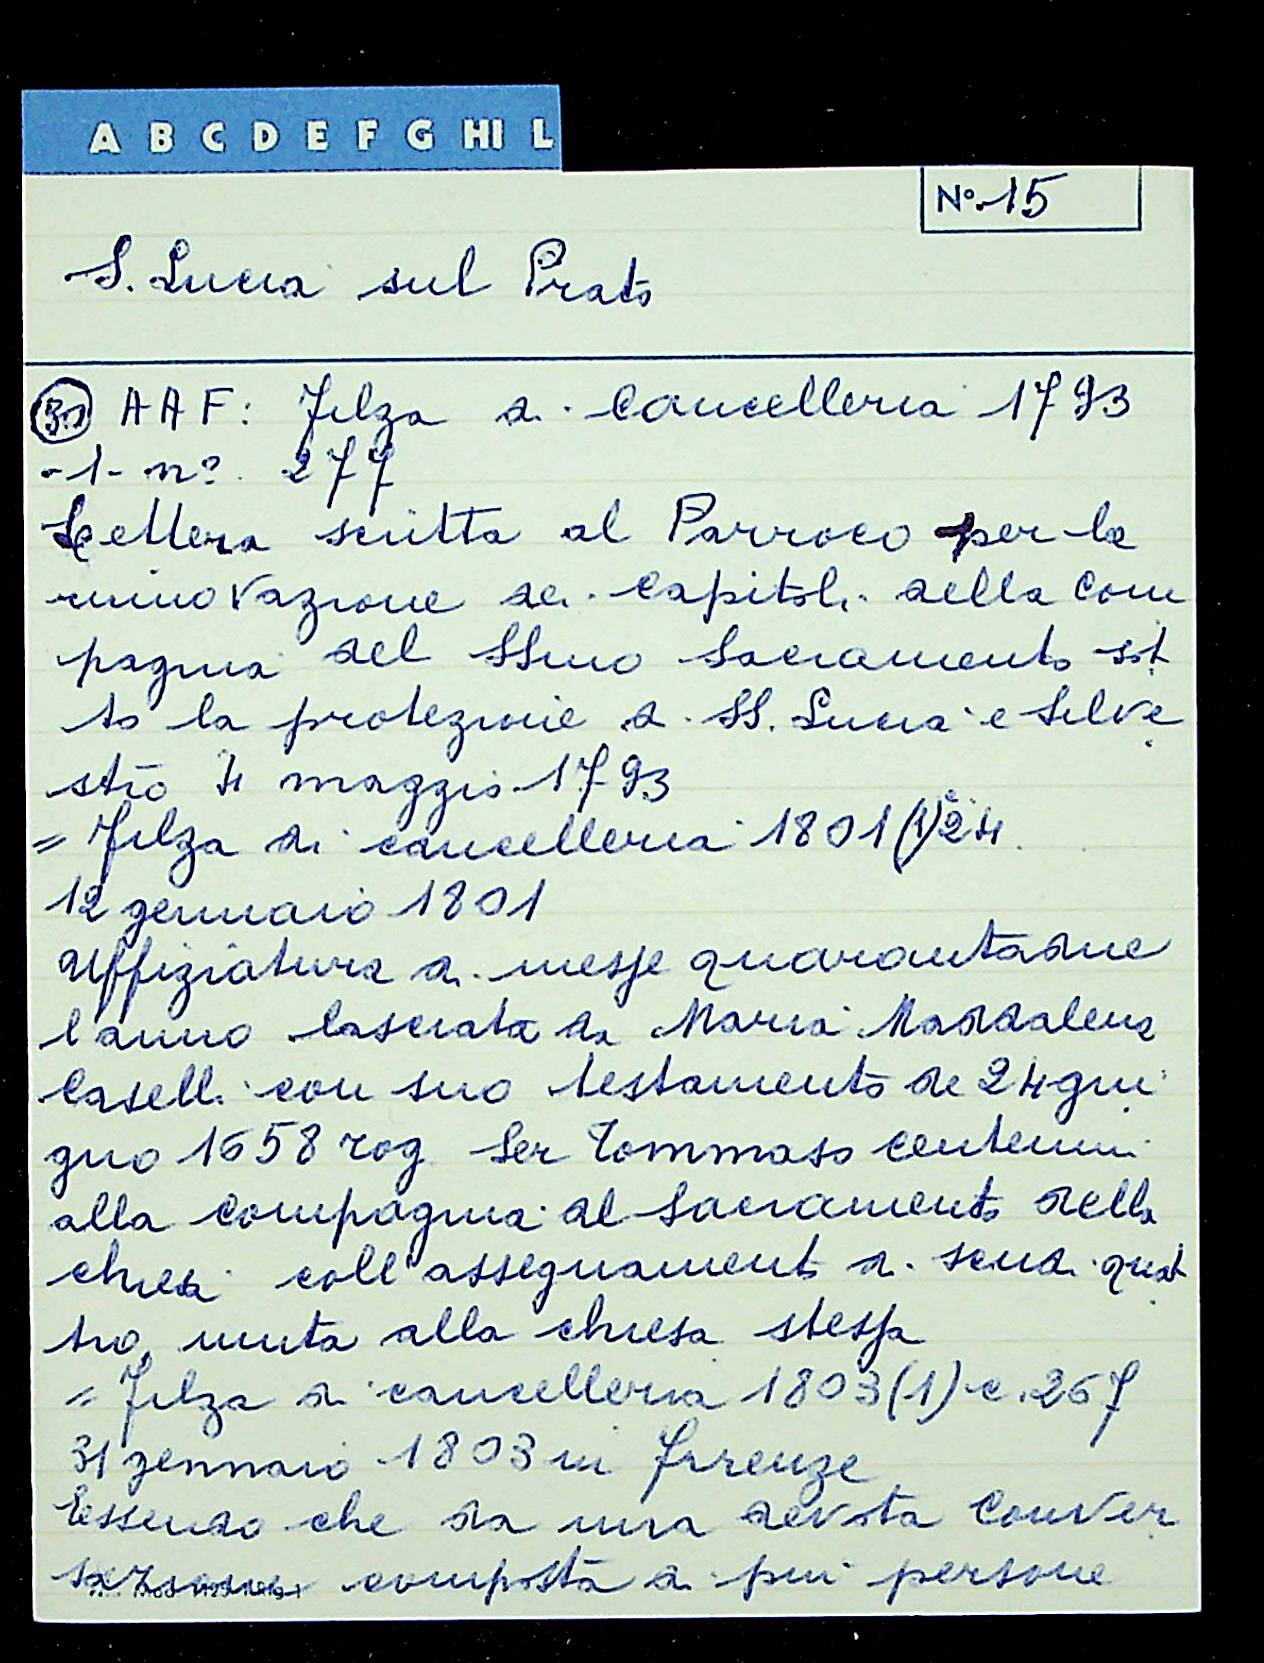 A B C D E F G HI L
No. 15
S. Lucia sul Prato
AAF: Filza di Cancelleria 1793
-1- no. 277
Lettera scritta al Parroco per la
rinnovazione dei Capitoli della Com
pagnia del SSmo Sacramento sot
to la protezione di SS. Lucia e Silve
stro 4 maggio 1793
= Filza di cancelleria 1801 (1) 24
12 gennaio 1801
Uffiziatura di messe quarantadue
l'anno lasciata da Maria Maddalena
Caselli con suo testamento de 24 giu
gno 1658 rog. Ser Tommaso Centenni
alla compagnia del Sacramento della
chiesa coll'assegnamento di scudi quat
tro, unita alla chiesa stessa
= Filza di cancelleria 1803 (1) c. 267
31 gennaio 1803 in Firenze
Essendo che da una devota Conver
sazione composta di più persone